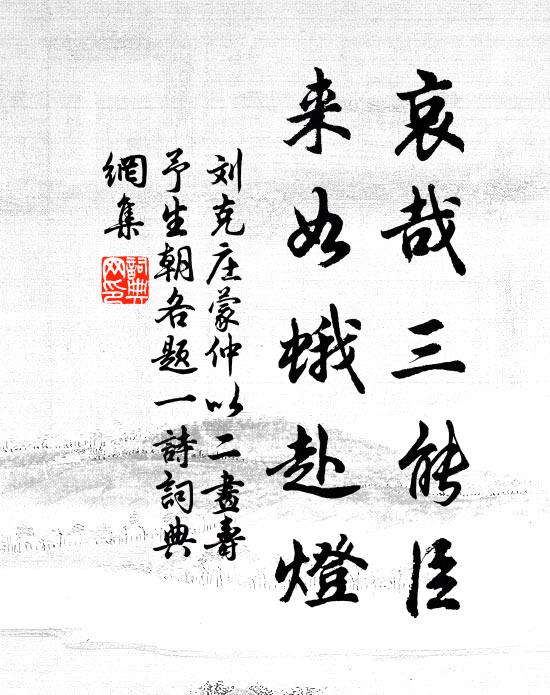 哀哉三能臣
来如蛾赴燈
刘克庄蒙仲以二畫壽
予生朝各题一詩詞典
網集
詞典
网印